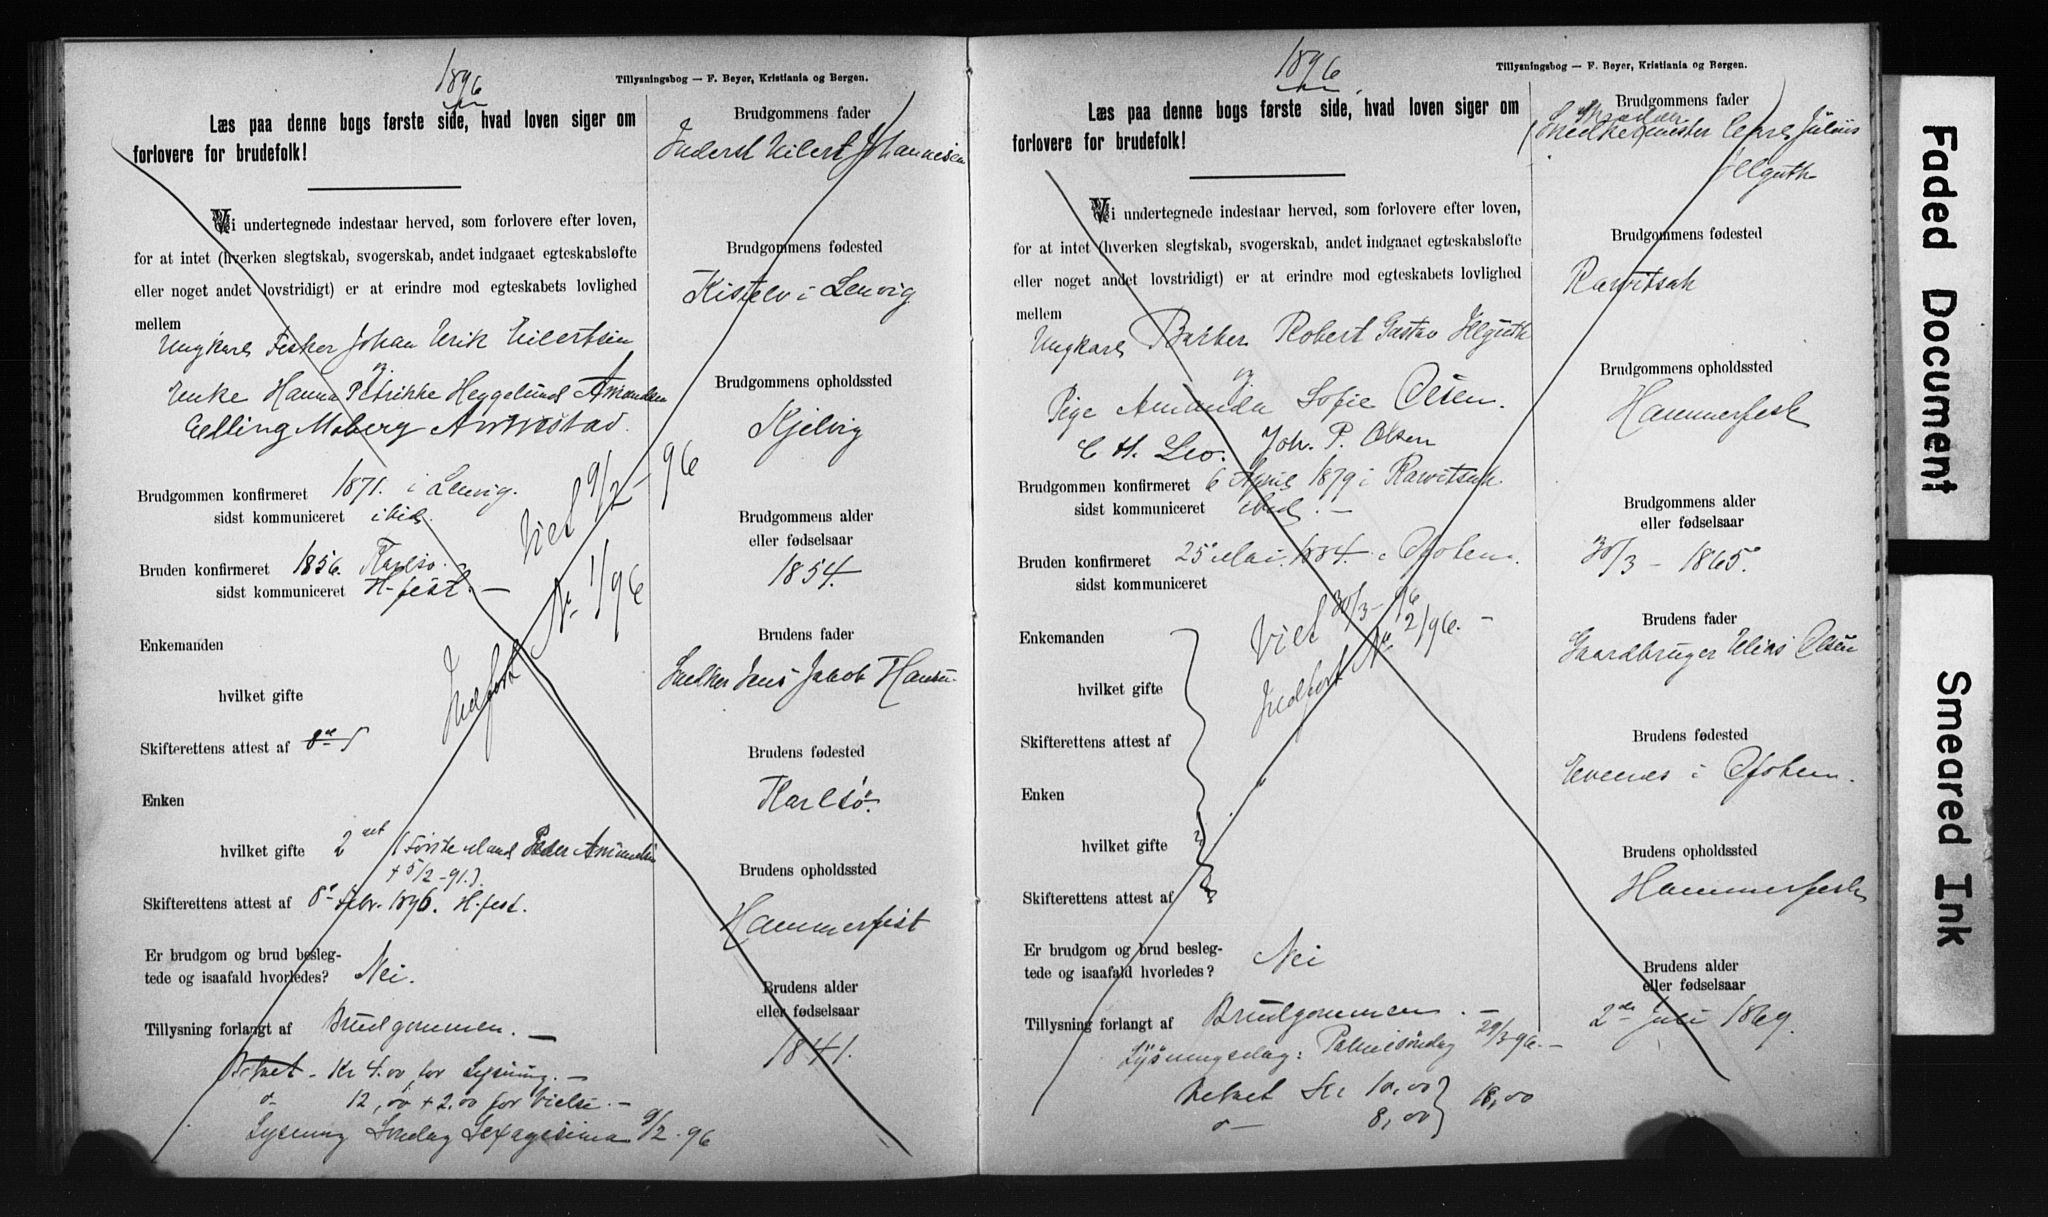 1896
Tillysningsbog — F. Beyer, Kristiania og Bergen.
Læs paa denne bogs første side, hvad loven siger om
forlovere for brudefolk!
Vi undertegnede indestaar herved, som forlovere efter loven,
for at intet (hverken slegtskab, svogerskab, andet indgaaet egteskabsløfte
eller noget andet lovstridigt) er at erindre mod egteskabets lovlighed
mellem
Ungkarl Fisker Johan Erik Eilertsen
og
Enke Hanna Petrikke Heggelund Amundsen
Elling Moberg
Brudgommen konfirmeret 1871. i Lenvig.
sidst kommuniceret ibid.
Bruden konfirmeret 1856. Karlsø.
sidst kommuniceret H-fest. —
Viet 9/2 - 96
Indført Nr. 1/96
Enkemanden
hvilket gifte
Skifterettens attest af
Enken
hvilket gifte 2det (Første Mand Peder Amundsen
+ 5/2 -91.)
Skifterettens attest af 8de Febr. 1896. H-fest.
Er brudgom og brud besleg-
tede og isaafald hvorledes? Nei.
Tillysning forlangt af Brudgommen. —
Betalt - Kr 4.00 for Lysning. —
12,00 + 2.00 for Vielse. —
Lysning Søndag Sexagesima 9/2. 96
Brudgommens fader
Inderst Eilert Johannesen
Brudgommens fødested
i Lenvig
Brudgommens opholdssted
Kjelvig
Brudgommens alder
eller fødselsaar
1854.
Brudens fader
Jens Jakob Hansen
Brudens fødested
Karlsö.
Brudens opholdssted
Hammerfest
Brudens alder
eller fødselsaar
1841.
1896
Tillysningsbog — F. Beyer, Kristiania og Bergen.
Læs paa denne bogs første side, hvad loven siger om
forlovere for brudefolk!
Vi undertegnede indestaar herved, som forlovere efter loven,
for at intet (hverken slegtskab, svogerskab, andet indgaaet egteskabsløfte
eller noget andet lovstridigt) er at erindre mod egteskabets lovlighed
mellem
Ungkarl Barber Robert Gustav Helguth
og
Pige Amanda Sofie Olsen.
Joh. P. Olsen
Brudgommen konfirmeret 6 April 1879 i Rawitsch
sidst kommuniceret ibid. —
Bruden konfirmeret 25 Mai. 1884. i Ofoten.
sidst kommuniceret
Viet 30/3 - 96
Indført Nr. 2/96. —
Enkemanden
hvilket gifte
Skifterettens attest af
Enken
hvilket gifte
Skifterettens attest af
Er brudgom og brud besleg-
tede og isaafald hvorledes? Nei
Tillysning forlangt af Brudgommen. —
Lysningsdag: Palmesøndag 29/3 96. —
Betalt Kr 10,00 } 18,00
8,00
Brudgommens fader
Carl Julius
Helguth
Brudgommens fødested
Rawitsch
Brudgommens opholdssted
Hammerfest
Brudgommens alder
eller fødselsaar
30/3 - 1865.
Brudens fader
Gaardbruger Elias Olsen
Brudens fødested
Evenes i Ofoten.
Brudens opholdssted
Hammerfest
Brudens alder
eller fødselsaar
2den Juli 1869.
Faded Document
Smeared Ink